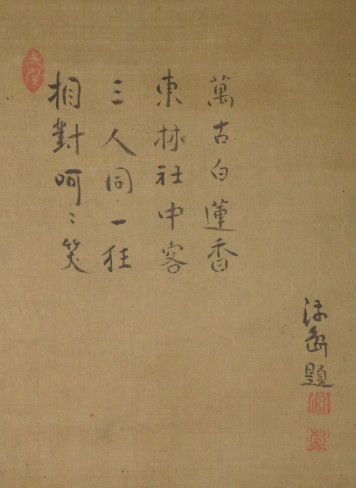 萬古白蓮香
東林社中客
三人同一狂
相對呵〻笑
題